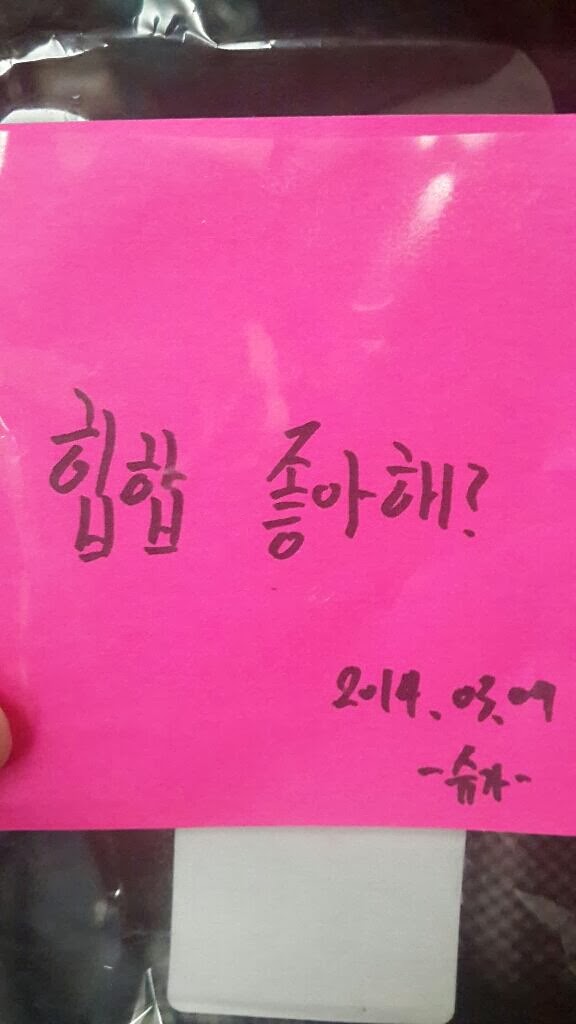 힙합 좋아해?
2014. 03. 09
-슈가-